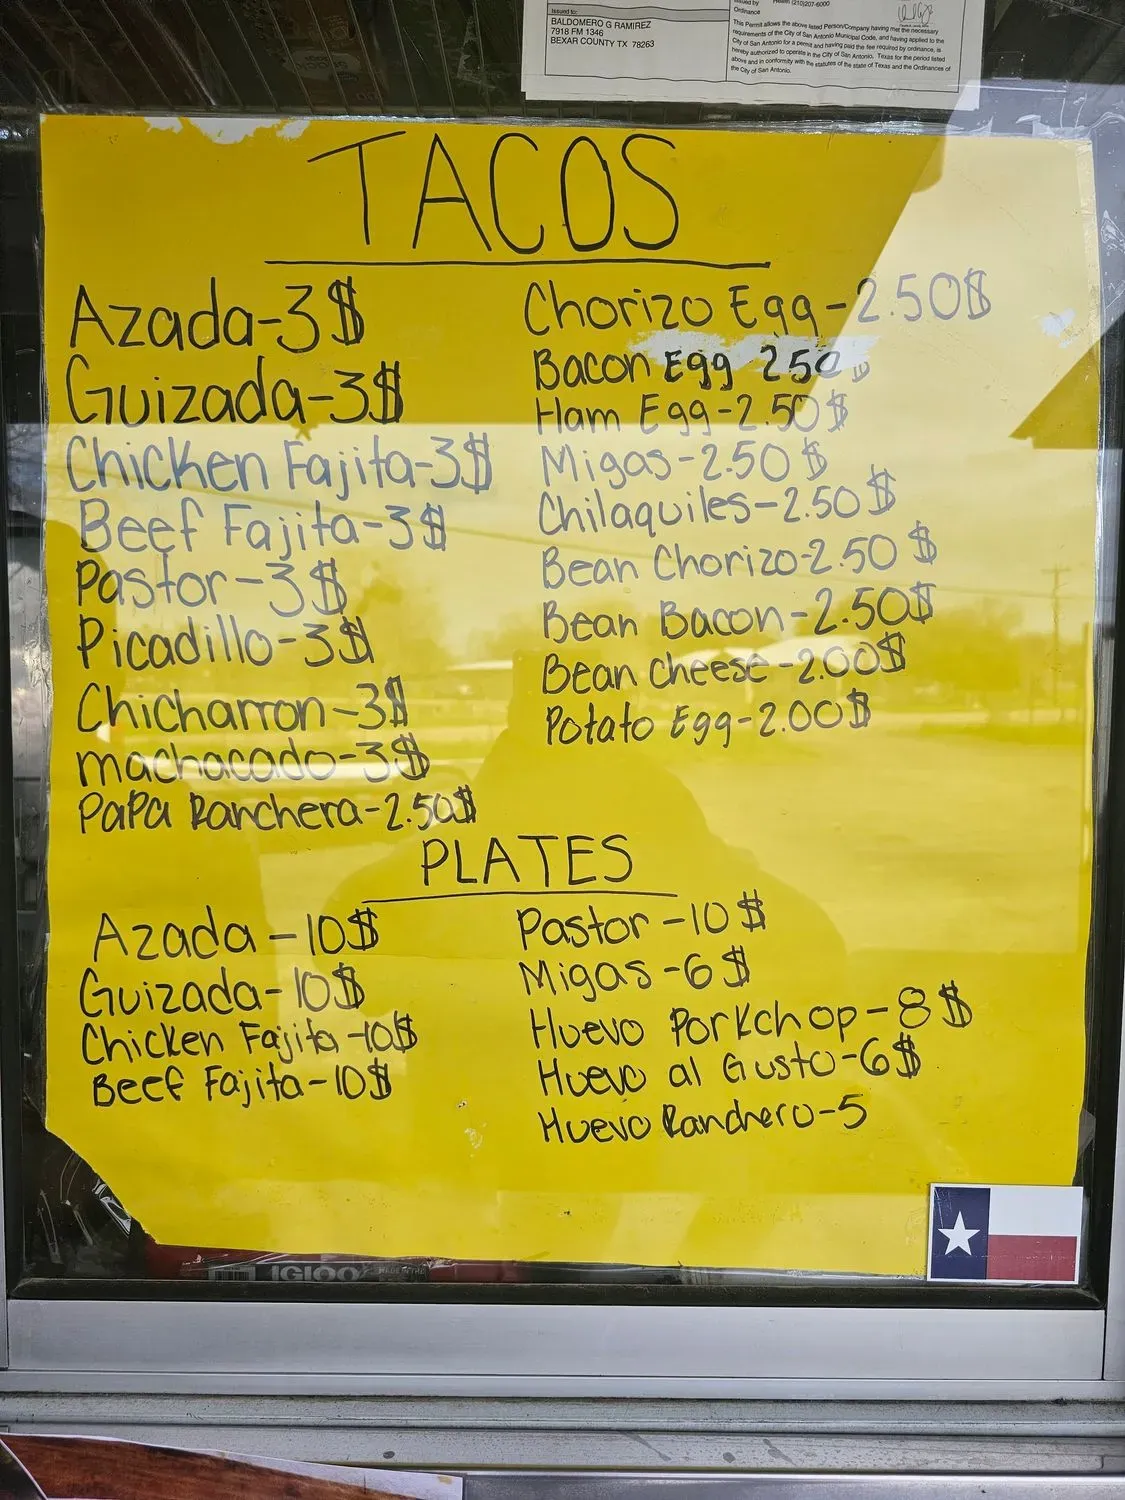 Issued to:
BALDOMERO G RAMIREZ
7918 FM 1346
BEXAR COUNTY TX 78263
Issued by
Ordinance
Health (210)207-6000
This Permit allows the above listed Person/Company having met the necessary
requirements of the City of San Antonio Municipal Code, and having applied to the
City of San Antonio for a permit and having paid the fee required by ordinance, is
hereby authorized to operate in the City of San Antonio, Texas for the period listed
above and in conformity with the statutes of the state of Texas and the Ordinances of
the City of San Antonio.
TACOS
Azada-3$
Guizada-3$
Chicken Fajita-3$
Beef Fajita-3$
Pastor-3$
Picadillo-3$
Chicharron-3$
machacado-3$
PaPa Ranchera-2.50$
Chorizo Egg-2.50$
Bacon Egg 250
Ham Egg-2.50$
Migas-2.50$
Chilaquiles-2.50$
Bean Chorizo-2.50$
Bean Bacon-2.50$
Bean cheese-2.00$
Potato Egg-2.00$
PLATES
Azada-10$
Guizada-10$
Chicken Fajita-10$
Beef Fajita-10$
Pastor-10$
Migas-6$
Huevo Porkchop-8$
Huevo al Gusto-6$
Huevo Ranchero-5
IGLOO